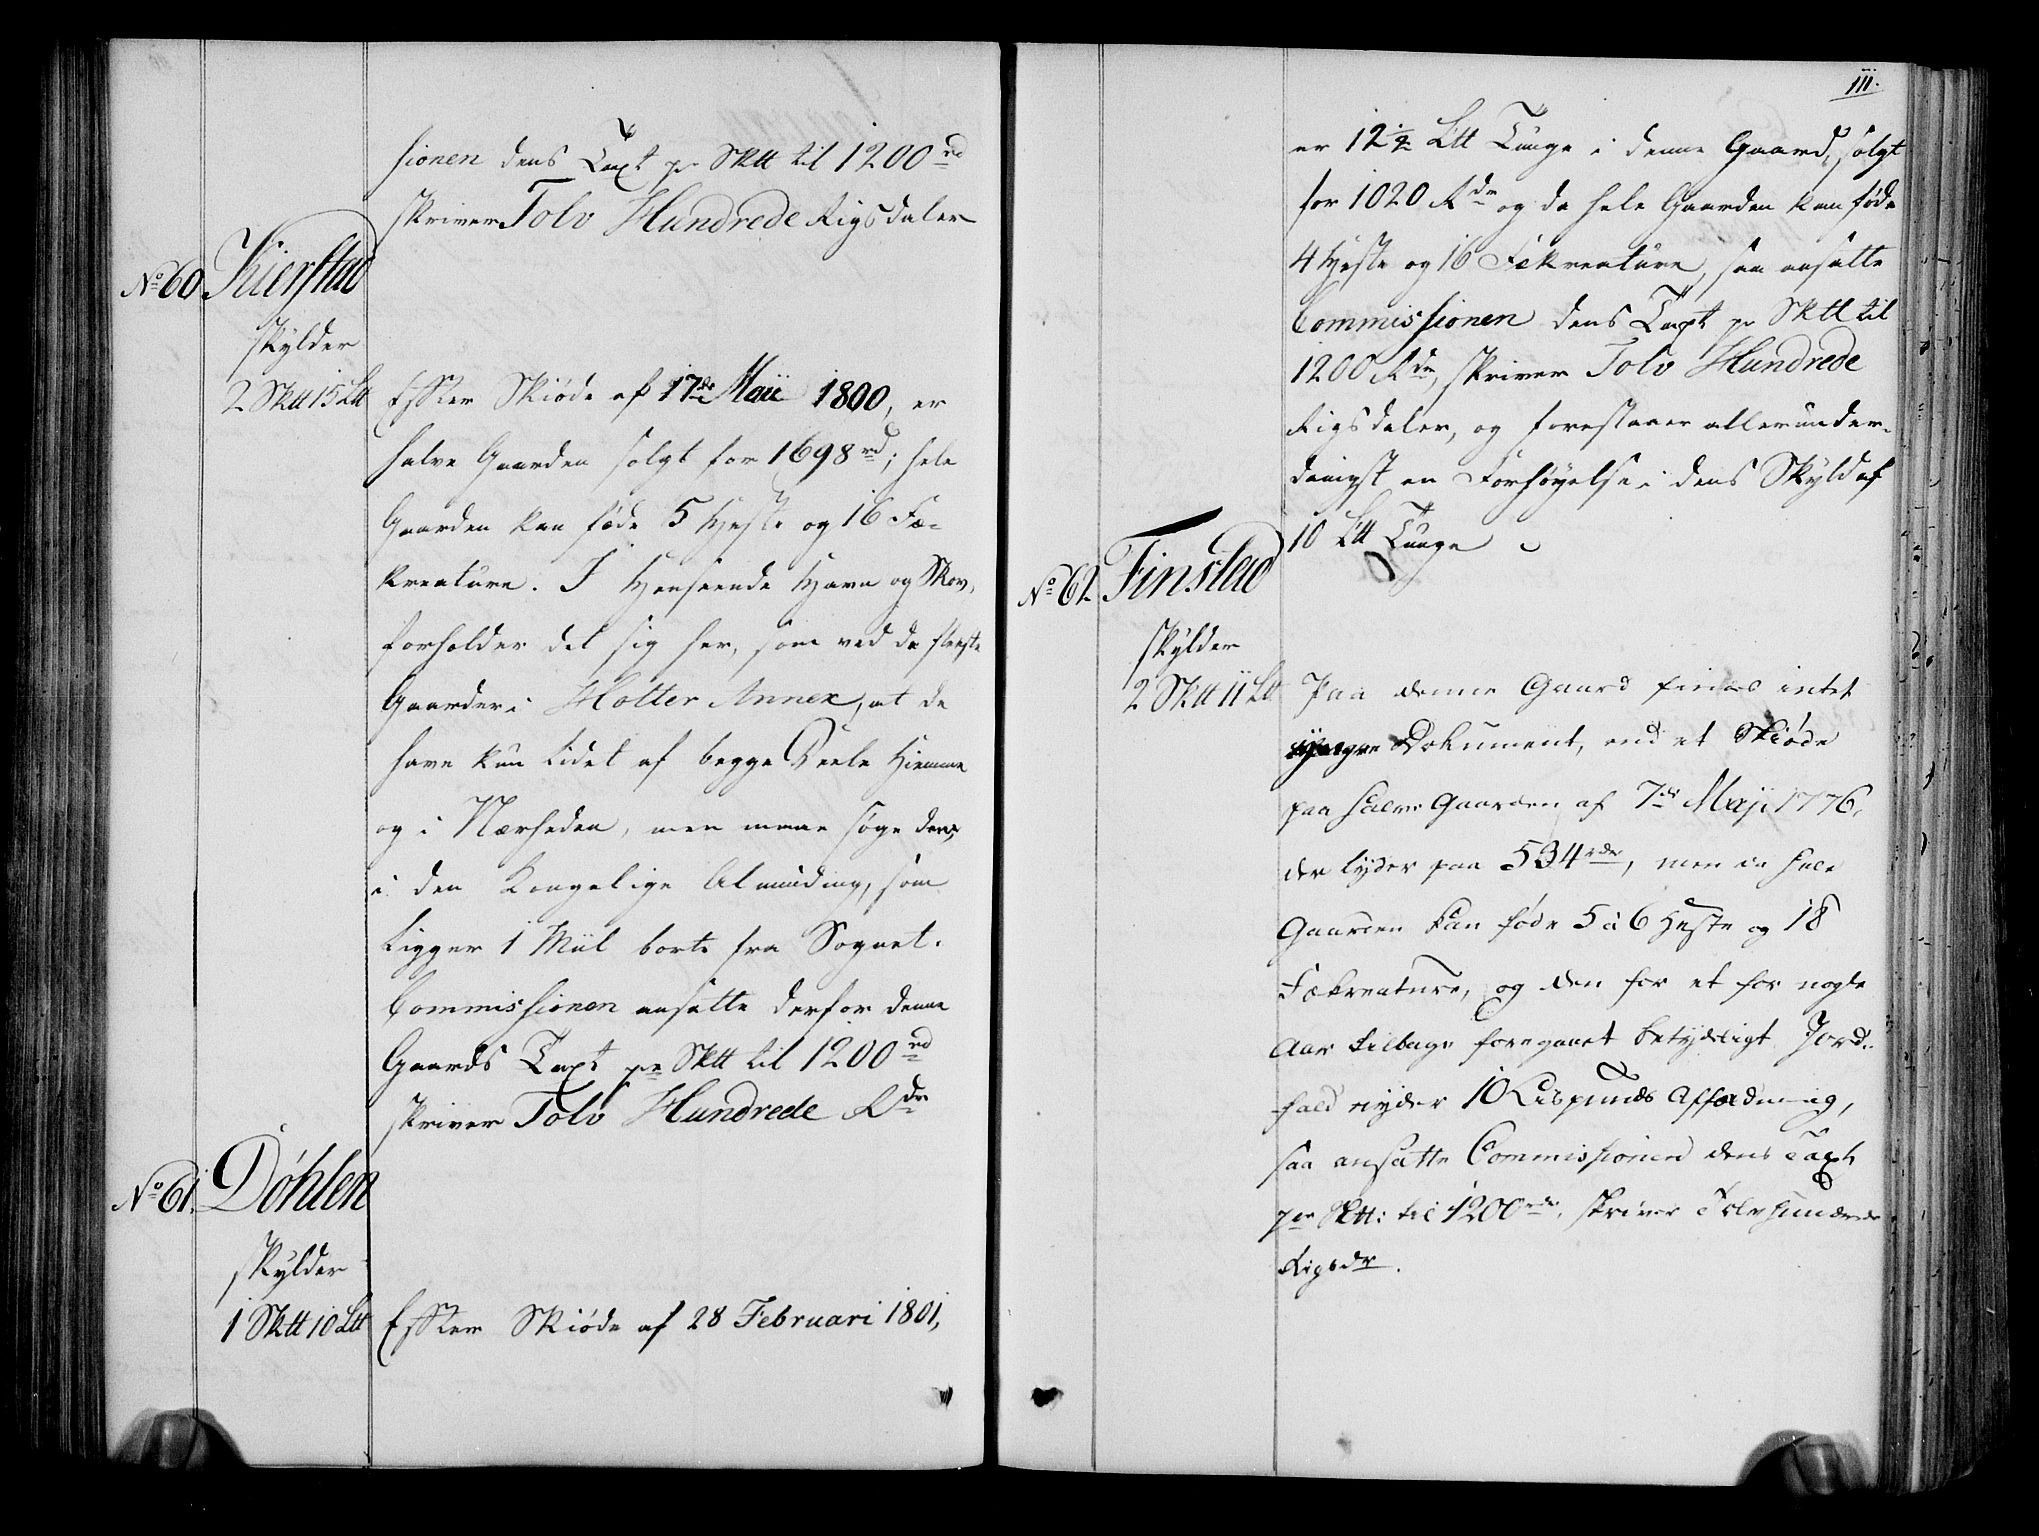 sionen dens Taxt pr Sktt til 1200 rd
skriver Tolv Hundrede Rigsdaler
No 60. Kierstad
skylder
2 Sktt 15 Ltt
Efter Skiöde af 17de Maii 1800, er
halve Gaarden solgt for 1698 rd; hele
Gaarden kan føde 5 Heste og 16 Fæ-
kreature. I Henseende Havn og Skov,
forholder det sig her, som ved de fleeste
Gaarder i Holter Annex, at de
have kun lidet af begge Deele hiemme
og i Nærheden, men maae søge dem
i den Kongelige Alminding, som
ligger 1 Miil borte fra Sognet.
Commissionen ansatte derfor denne
Gaards Taxt pr Sktt til 1200 rd
skriver Tolv Hundrede Rdr
No 61. Döhlen
skylder
1 Sktt 10 Ltt
Efter Skiöde af 28 Februari 1801,
111.
er 12½ Ltt Tunge i denne Gaard, solgt
for 1020 Rdr og da hele Gaarden kan føde
4 Heste og 16 Fækreature, saa ansatte
Commissionen dens Taxt pr Sktt til
1200 Rdr, skriver Tolv Hundrede
Rigsdaler, og forestaaer allerunder-
danigst en Forhøyelse i dens Skyld af
10 Ltt Tunge
No 62. Finstad
skylder
2 Sktt 11 Ltt
Paa denne Gaard findes intet
yngre Dokument, end et Skiöde
paa halve Gaarden af 7de Maji 1776,
der lyder paa 534 rdr, men da hele
Gaarden kan føde 5 à 6 Heste og 18
Fækreature, og den for et for nogle
Aar tilbage foregaaet betydeligt Jord-
fald nyder 10 Lispunds Affældning,
saa ansatte Commissionen dens Taxt
per Sktt: til 1200 rdr, skriver Tolvhundrede
Rigsdr.